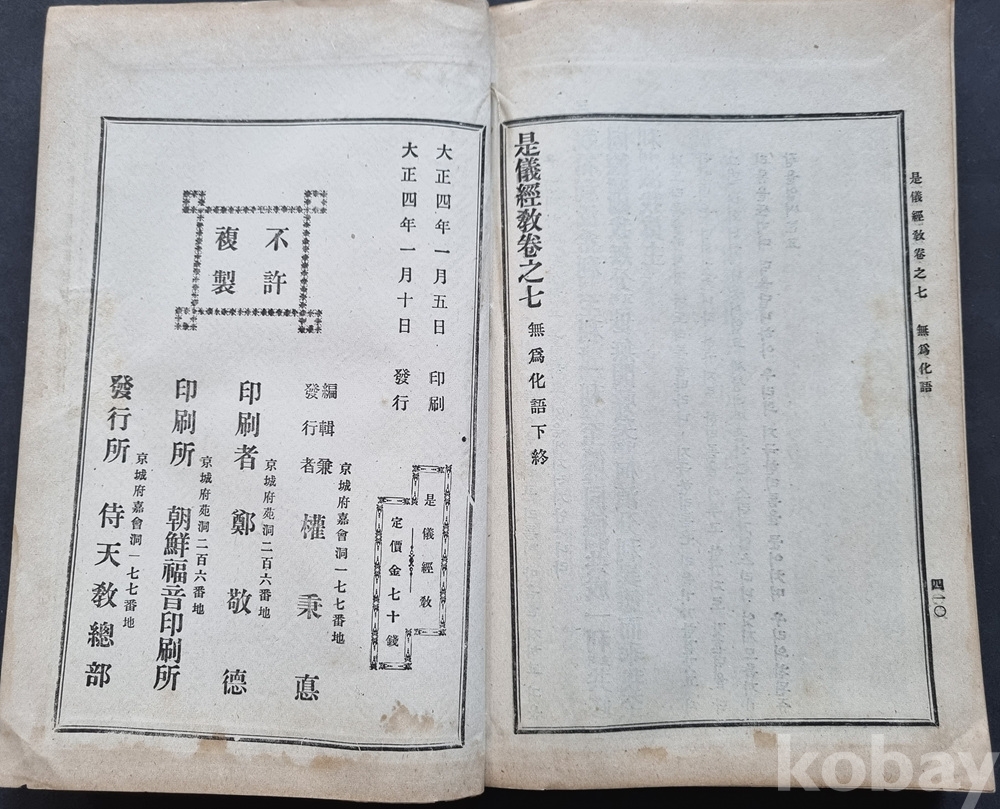 是儀經敎卷之七 無爲化語
四一〇
是儀經敎卷之七 無爲化語下終
大正四年一月五日 印刷
大正四年一月十日 發行
是儀經敎
定價金七十錢
不許
複製
京城府嘉會洞一七七番地
編輯兼
發行者 權秉悳
京城府苑洞二百六番地
印刷者 鄭敬德
京城府苑洞二百六番地
印刷所 朝鮮福音印刷所
京城府嘉會洞一七七番地
發行所 侍天敎總部
kobay